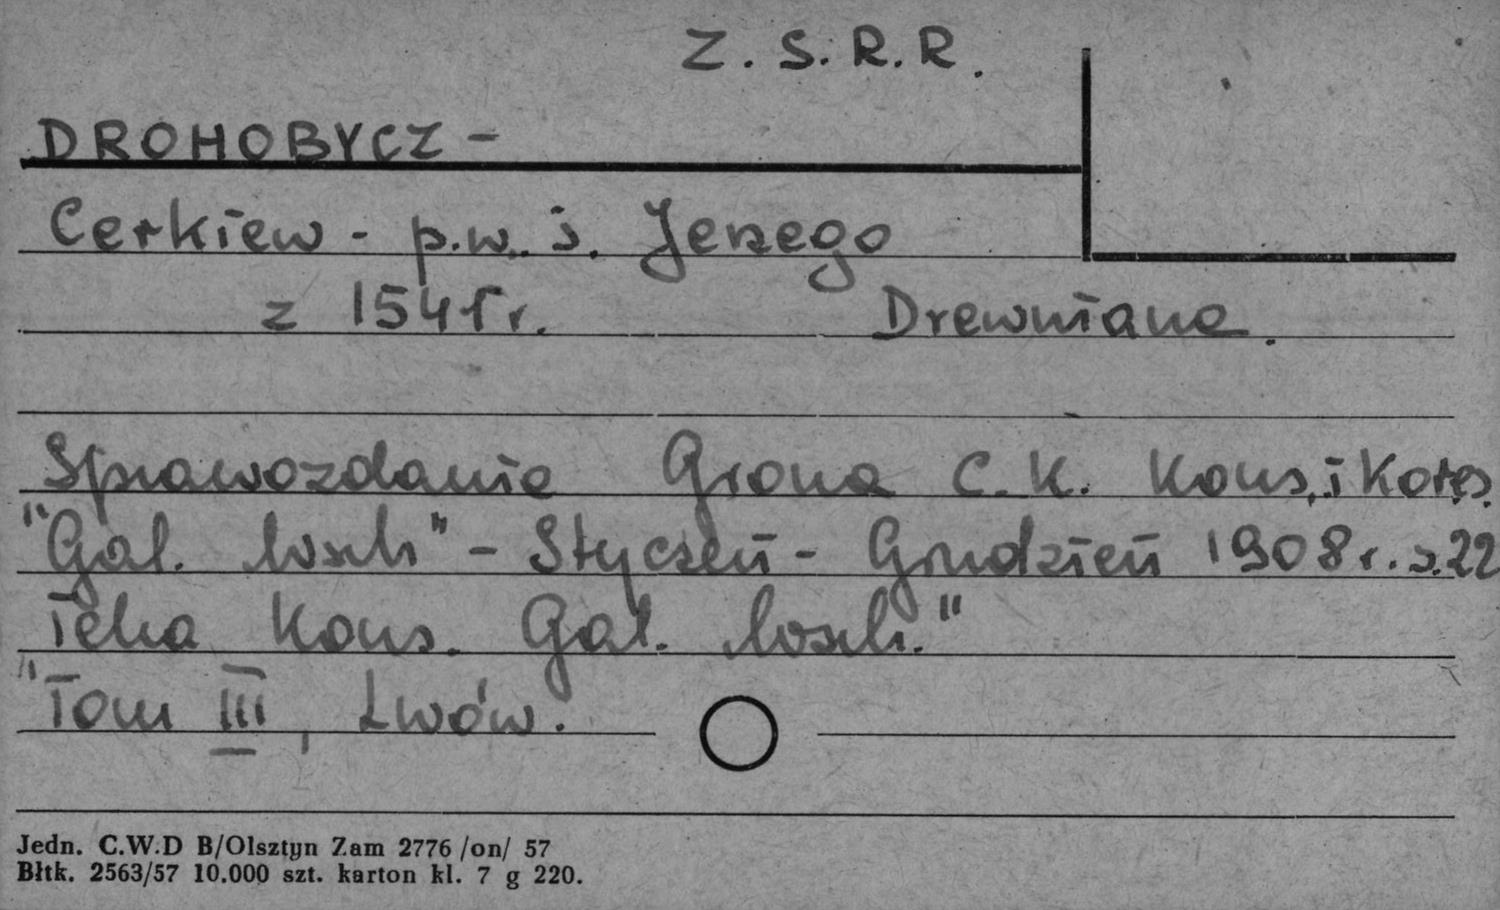 Z. S. R. R.
DROHOBYCZ -
Cerkiew - p.w. ś. Jerzego
z 1541 r. Drewniana.
Sprawozdanie Grona C. K. Kons. i Kores.
"Gal. wsch" - Styczeń - Grudzień 1908 r. s. 22
Teka Kons. Gal. wsch."
"Tom III, Lwów.
Jedn. C.W.D B/Olsztyn Zam 2776 /on/ 57
Błtk. 2563/57 10.000 szt. karton kl. 7 g 220.